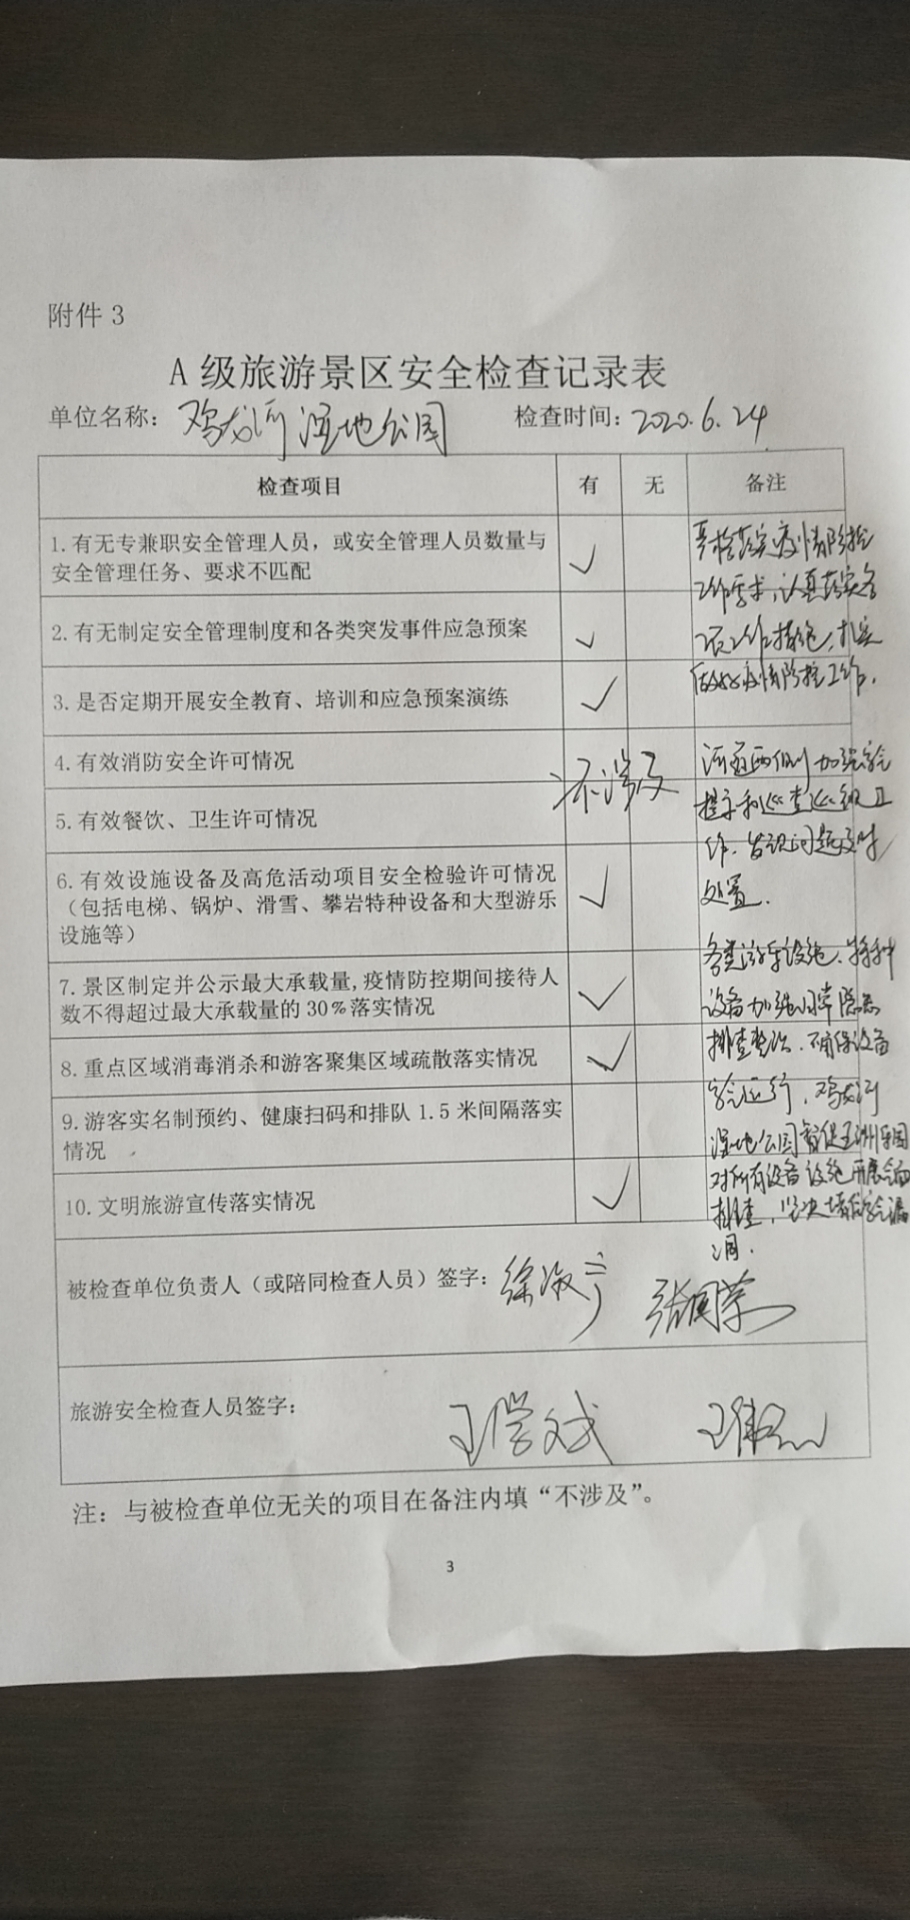 附件 3
A 级旅游景区安全检查记录表
单位名称：鸡龙河湿地公园 检查时间：2020.6.24
检查项目 有 无 备注
1.有无专兼职安全管理人员，或安全管理人员数量与
安全管理任务、要求不匹配 ✓
2.有无制定安全管理制度和各类突发事件应急预案 ✓
3.是否定期开展安全教育、培训和应急预案演练 ✓
4.有效消防安全许可情况
不涉及
5.有效餐饮、卫生许可情况
6.有效设施设备及高危活动项目安全检验许可情况
（包括电梯、锅炉、滑雪、攀岩特种设备和大型游乐
设施等） ✓
7.景区制定并公示最大承载量,疫情防控期间接待人
数不得超过最大承载量的 30%落实情况 ✓
8.重点区域消毒消杀和游客聚集区域疏散落实情况 ✓
9.游客实名制预约、健康扫码和排队 1.5 米间隔落实
情况
10.文明旅游宣传落实情况 ✓
严格落实疫情防控
工作要求，认真落实各
项工作措施，扎实
做好疫情防控工作.
河道两侧加强安全
提示和巡查巡视工
作.发现问题及时
处置.
各类游乐设施、特种
设备加强日常隐患
排查整治.确保设备
安全运行，鸡龙河
湿地公园督促亚洲乐园
对所有设备设施开展全面
排查，坚决堵住安全漏
洞.
被检查单位负责人（或陪同检查人员）签字： 张国荣
旅游安全检查人员签字： 王学文
注：与被检查单位无关的项目在备注内填“不涉及”。
3